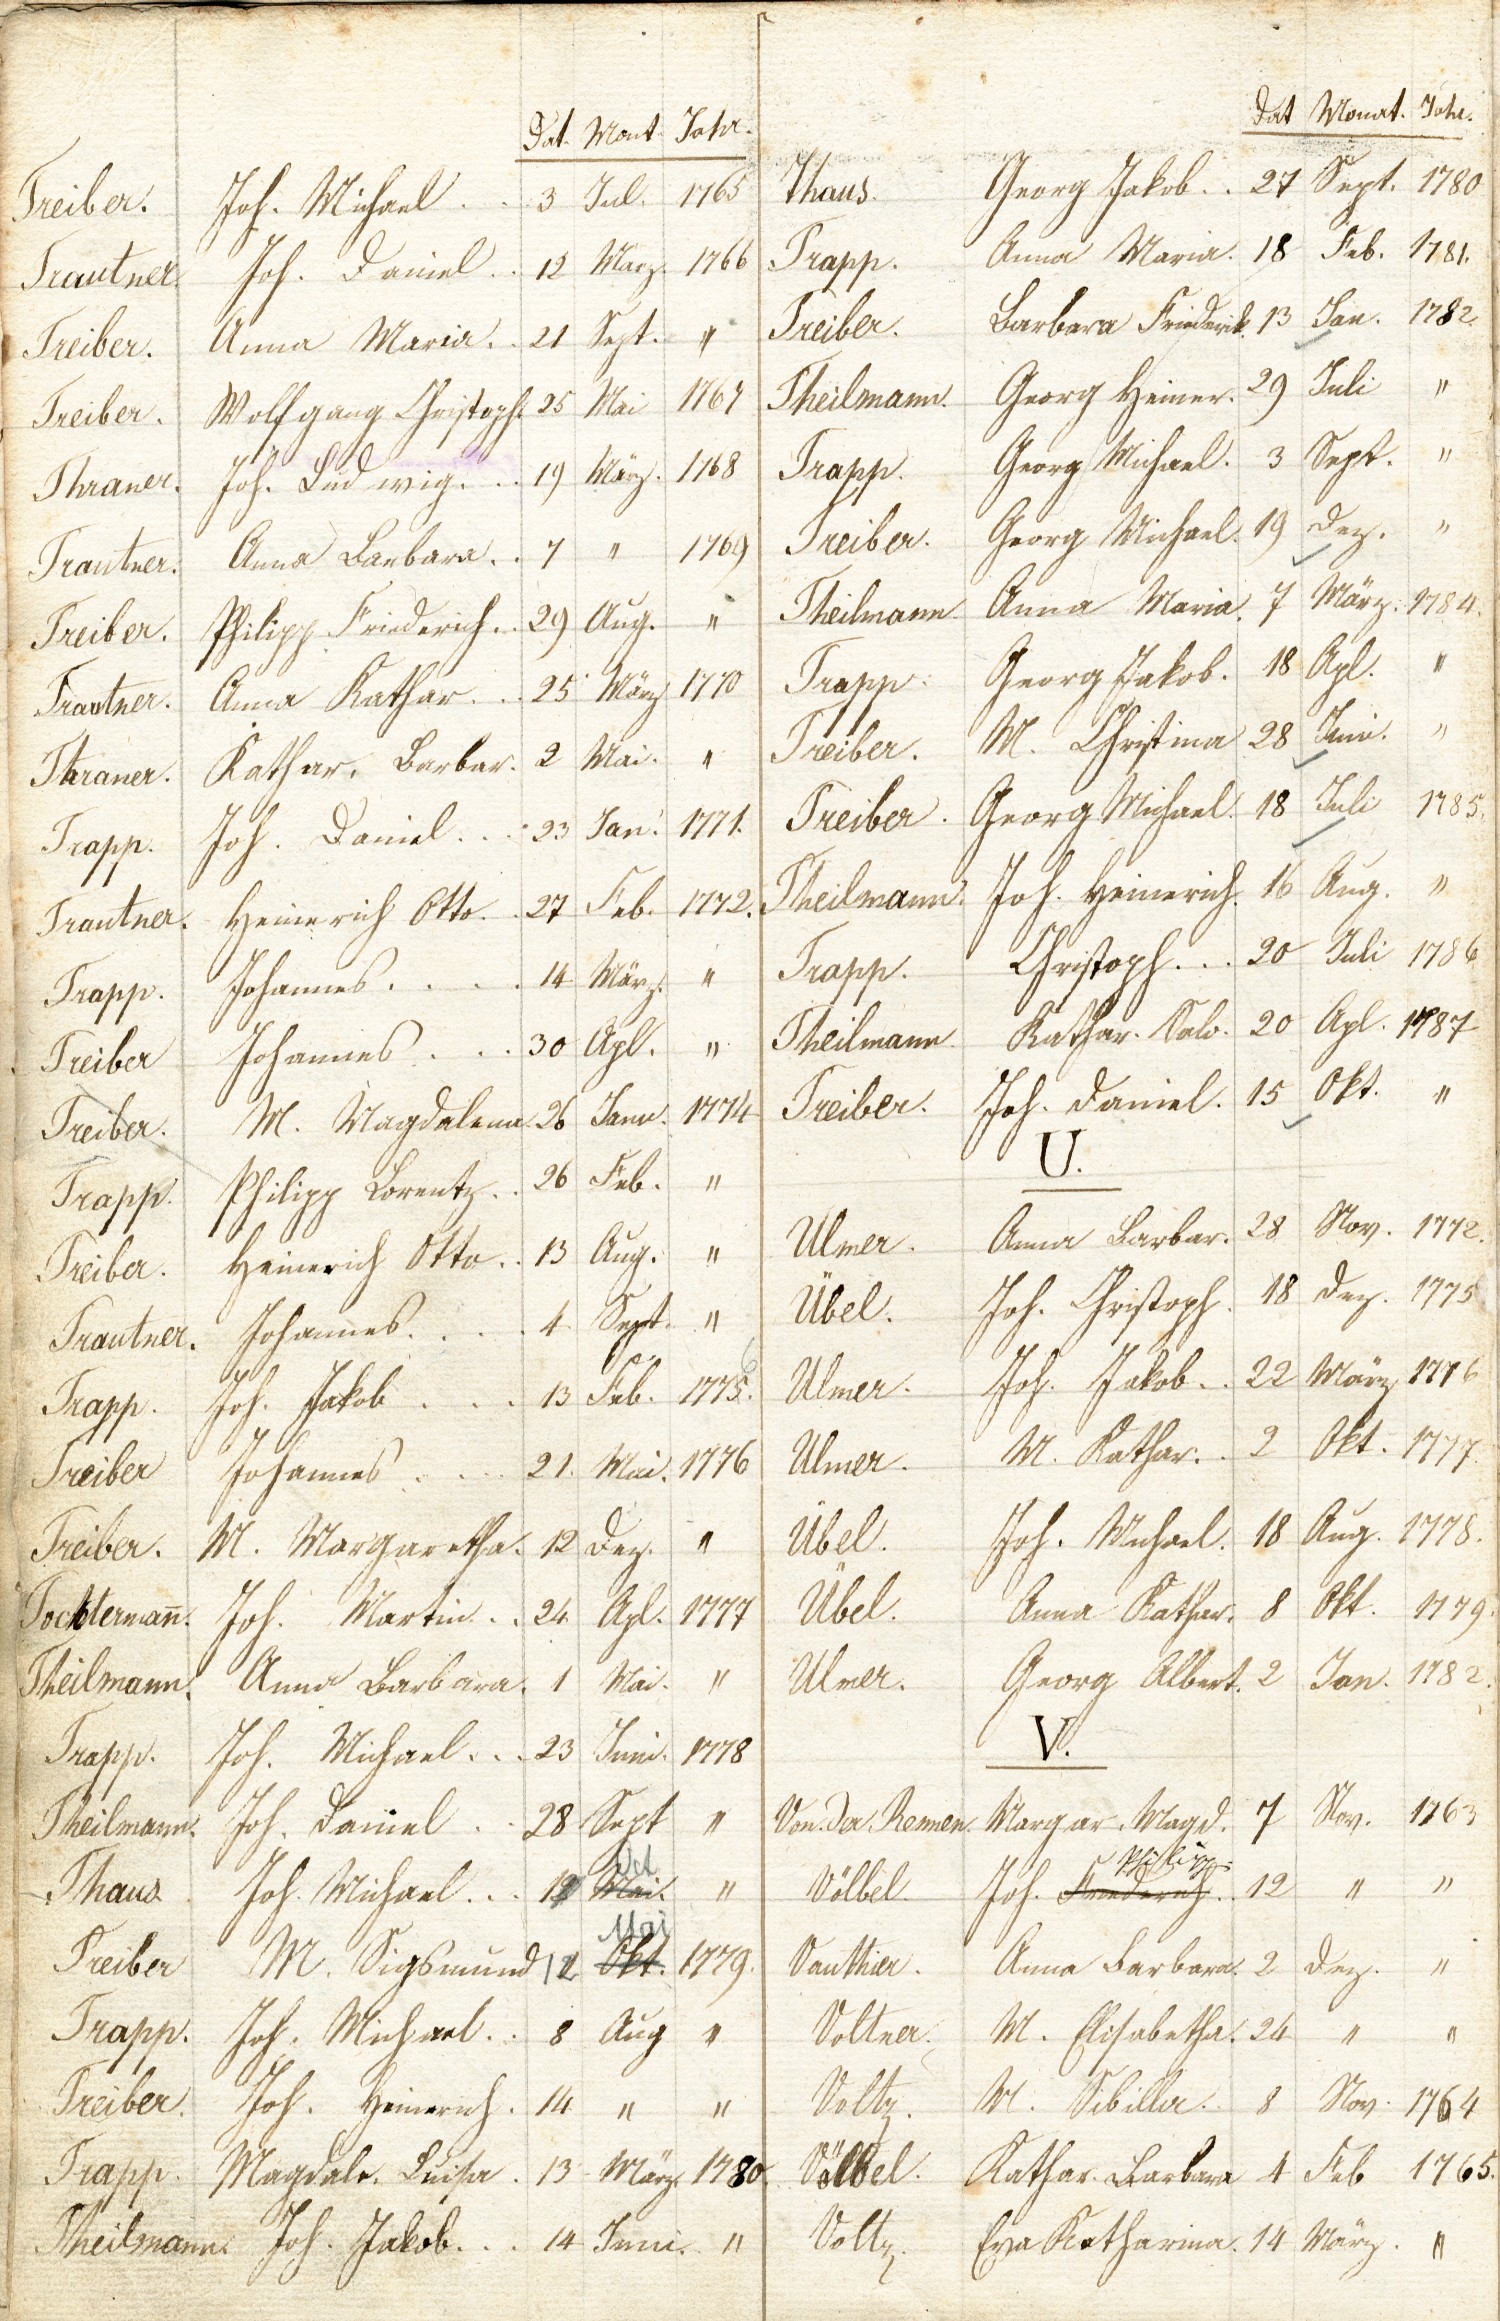 Dat. Mont. Jahr.
Treiber. Joh. Michael . . 3 Jul. 1765
Trautner. Joh. Daniel . . 12 März. 1766
Treiber. Anna Maria. . 21 Sept. "
Treiber. Wolfgang Christoph. 25 Mai 1767
Thraner. Joh. Ludwig. . . 19 März. 1768
Trautner. Anna Barbara. . 7 " 1769
Treiber. Philipp Friederich. . 29 Aug. "
Trautner. Anna Kathar. . . 25 März 1770
Thraner. Kathar. Barbar. 2 Mai. "
Trapp. Joh. Daniel. . . 23 Jan. 1771.
Trautner. Heinerich Otto. . 27 Feb. 1772.
Trapp. Johannes. . . . . 14 März. "
Treiber Johannes. . . . 30 Apl. "
Treiber. M. Magdalena 26 Janr. 1774
Trapp. Philipp Lorentz. . 26 Feb. "
Treiber. Heinerich Otto. . 13 Aug. "
Trautner. Johannes. . . . 4 Sept. "
Trapp. Joh. Jakob . . . 13 Feb. 1775. 6
Treiber Johannes . . . . 21. Mai. 1776
Treiber. M. Margaretha. 12 Dez. "
Tochtermann̄. Joh. Martin. . 24 Apl. 1777
Theilmann. Anna Barbara. 1 Mai. "
Trapp. Joh. Michael. . . 23 Juni. 1778
Theilmann. Joh. Daniel . . 28 Sept "
Oct
Thaus Joh. Michael . . . 12 Mai. "
Mai
Treiber M. Sigsmund 12 Okt. 1779.
Trapp. Joh. Michael. . 8 Aug "
Treiber. Joh. Heinerich. 14 " "
Trapp. Magdale. Luisa . 13 März. 1780.
Theilmann. Joh. Jakob. . . 14 Juni. "
Dat Monat. Jahr.
Thaus. Georg Jakob . . 27 Sept. 1780
Trapp. Anna Maria. 18 Feb. 1781.
Treiber. Barbara Friederik. 13 Jan. 1782.
Theilmann. Georg Heiner. 29 Juli "
Trapp. Georg Michael. 3 Sept. "
Treiber. Georg Michael. 19 Dez. "
Theilmann. Anna Maria. 7 März. 1784.
Trapp. Georg Jakob. 18 Apl. "
Treiber. M. Christina 28 Juni. "
Treiber. Georg Michael. 18 Juli 1785.
Theilmann. Joh. Heinerich. 16 Aug. "
Trapp. Christoph. . . 20 Juli 1786
Theilmann. Kathar. Salo. 20 Apl. 1787
Treiber. Joh. Daniel. 15 Okt. "
U.
Ulmer. Anna Barbar. 28 Nov. 1772.
Übel. Joh. Christoph. 18 Dez. 1775
Ulmer. Joh. Jakob. . 22 März 1776
Ulmer. M. Kathar. . 2 Okt. 1777.
Übel. Joh. Michael. 18 Aug. 1778.
Übel. Anna Kathar. 8 Okt. 1779.
Ulmer. Georg Albert. 2 Jan. 1782.
V.
Von Der Remen. Margar. Magd. 7 Nov. 1763
Philipp.
Völbel Joh. Friederich. . 12 " "
Vauthier. Anna Barbara. 2 Dez. "
Voltner. M. Elisabetha. 24 " "
Voltz. M. Sibilla. 8 Nov. 1764
Völbel. Kathar. Barbara 4 Feb 1765.
Voltz. Eva Katharina. 14 März. "